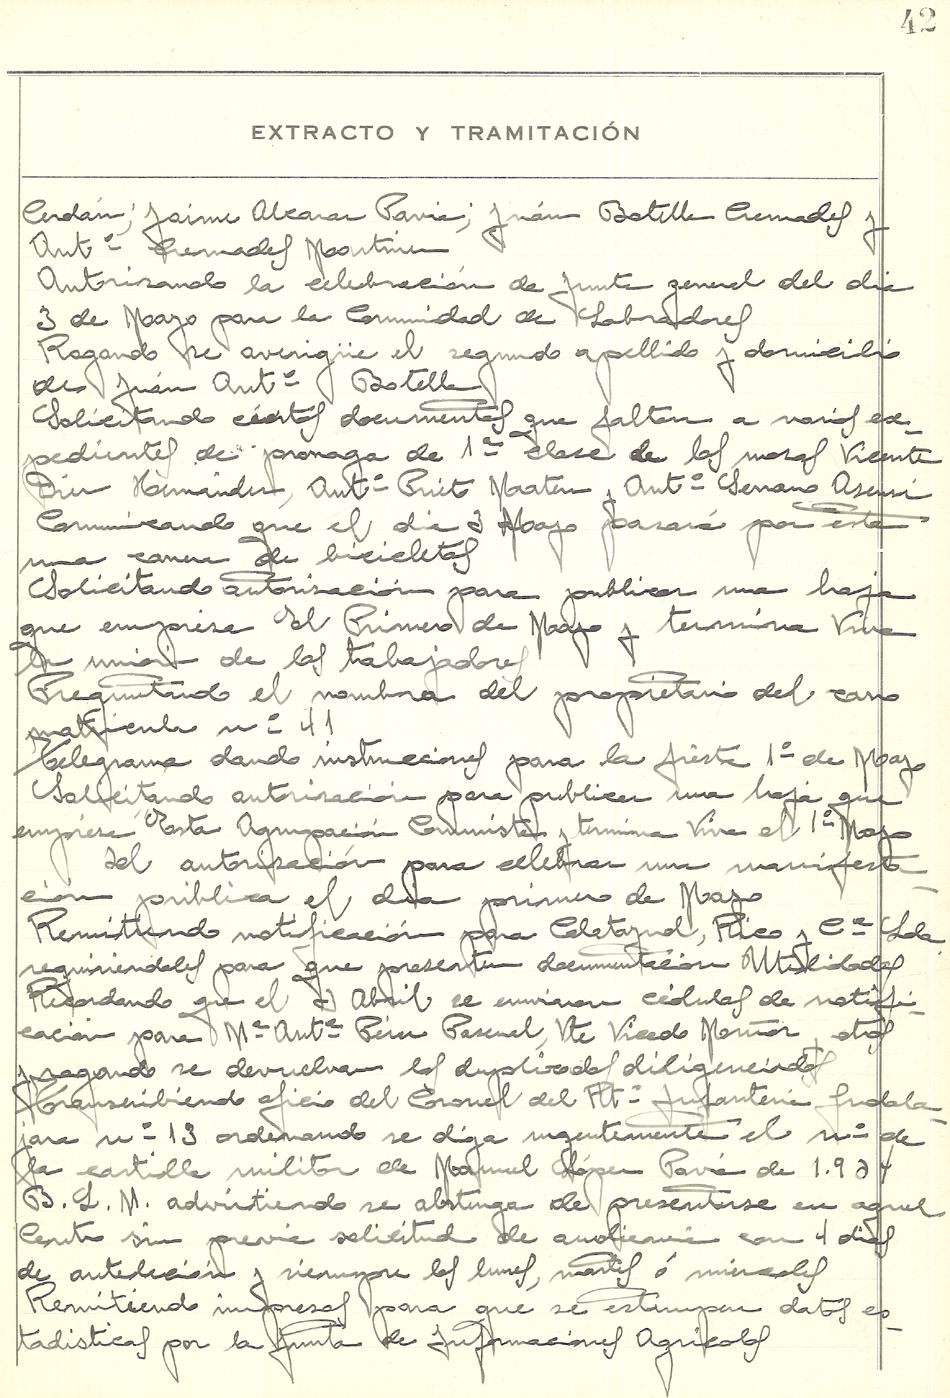 42
EXTRACTO Y TRAMITACIÓN
Cerdán; Jaime Alcaraz Pavia; Juán Botella Cremades y
Antº Cremades Martinez
Autorizando la celebración de junta general del dia
3 de Mayo para la Comunidad de Labradores
Rogando se averigüe el segundo apellido y domicilio
de Juán Antº Botella
Solicitando ciertos documentos que faltan a varios ex-
pedientes de proroga de 1ª clase de los mozos Vicente
Diez Hernández, Antº Prieto y Antº Serrano Asensi
Comunicando que el dia 3 Mayo pasará por esta
una carrera de bicicletas
Solicitando autorización para publicar una hoja
que empieza El Primero de Mayo y termina Viva
la unión de los trabajadores
Preguntando el nombre del propietario del carro
matricula nº 41
Telegrama dando instrucciones para la fiesta 1º de Mayo
Solicitando autorización para publicar una hoja que
empieza Esta Agrupación Comunista y termina Viva el 1º Mayo
Id autorización para celebrar una manifesta-
ción pública el dia primero de Mayo
Remitiendo notificación para Calatayud, Rico y Cª Lda
requiriendoles para que presenten documentación Utilidades
Recordando que el 2 Abril se enviaron cédulas de notifi-
cación para Mª Antª Pérez Pascual, Vte Vicedo y otros
y rogando se devuelvan los duplicados diligenciados
Transcribiendo oficio del Coronel del Rtº Infanteria Guadala-
jara nº 13 ordenando se diga urgentemente el nº de
la cartilla militar de Manuel López Pavia de 1.924
B. L. M. advirtiendo se abstenga de presentarse en aquel
Centro sin previa solicitud de audiencia con 4 dias
de antelación y siempre los lunes, martes ó miercoles
Remitiendo impresos para que se estampen datos es-
tadisticos por la Junta de Informaciones Agricolas